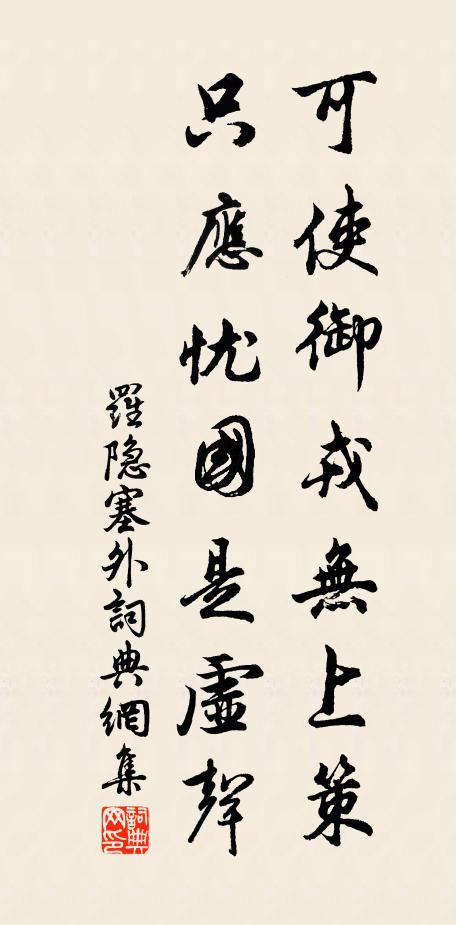 可使御戎無上策
只應忧國是虛聲
羅隐塞外詞典網集
詞典網印